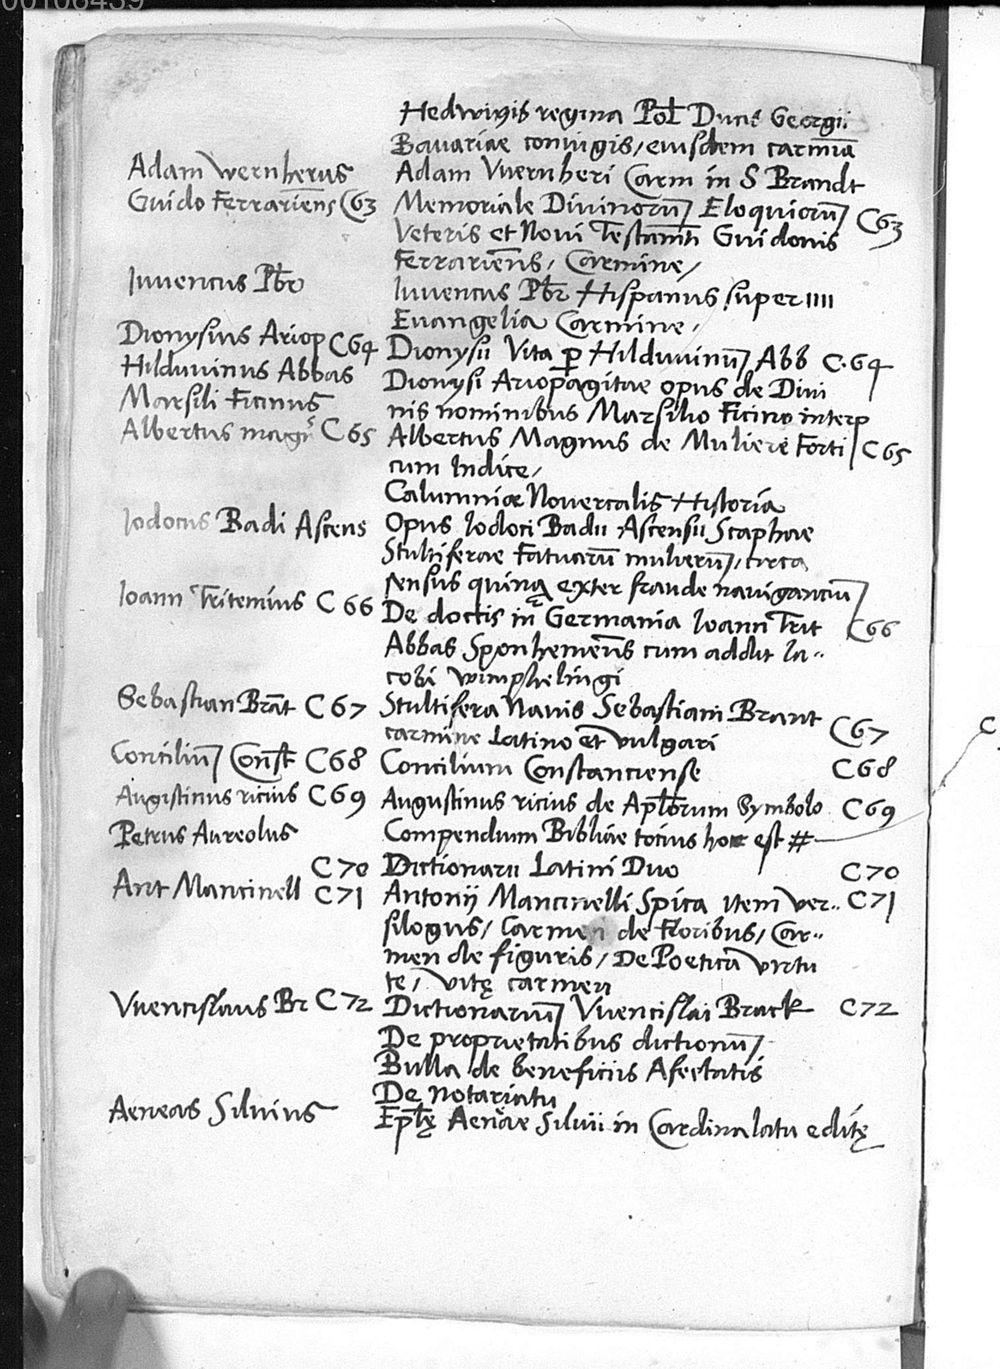 00106439
Hedwigis regina Pol Ducis Georgii
Bauariae coniugis, eiusdem carmia
Adam wernherus Adam Vuernheri Carm in S Brandt
Guido Ferrariens C63 Memoriale Diuinoru Eloquioru C63
Veteris et Noui Testamti Guidonis
Ferrariens, Carmine,
Iuuencus Pbr Iuuencus Pbr Hispanus super IIII
Euangelia Carmine,
Dionysius Ariop C64 Dionysii Vita p Hilduuinu Abb C.64
Hilduuinus Abbas Dionysi Ariopagitae opus de Diui
Marsili Ficinus nis nominibus Marsilio Ficino interp
Albertus magns C65 Albertus Magnus de Muliere Forti C65
cum Indice,
Calumniae Nouercalis Historia
Iodocus Badi Ascens Opus Iodoci Badii Ascensii Scaphae
Stultiferae Fatuaru mulieru, circa
sensus quinq exter fraude nauigantiu
Ioann Tritemius C 66 De doctis in Germania Ioann Trit C66
Abbas Sponhemens cum addit Ia..
cobi wimphelingi
Sebastian Brat C 67 Stultifera Nauis Sebastiani Brant C67
carmine Latino et vulgari
Conciliu Const C68 Concilium Constanciense C68
Augustinus ricius C69 Augustinus ricius de Aplorum Symbolo C69
Petrus Aureolus Compendium Bibliae totius hoc est #
C70 Dictionarii Latini Duo C70
Ant Mancinell C71 Antonij Mancinelli Spica item ver.. C71
silogus, Carmen de Floribus, Car..
men de figuris, De Poetica virtu
te, vitę carmen
Vuencislaus Br C72 Dictionariu Vuencislai Brack C72
De proprietatibus dictionu,
Bulla de beneficiis Afectatis
De Notariatu
Aeneas Siluius Eplę Aeneae Siluii in Cardinalatu editę
C